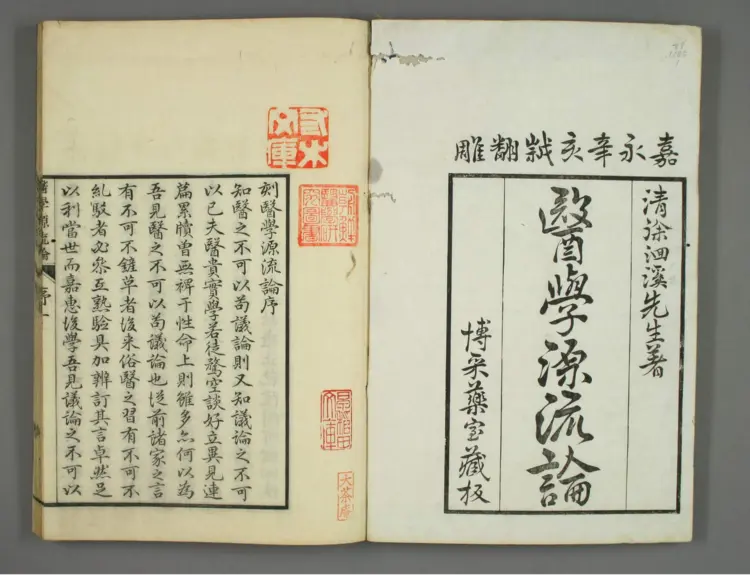 嘉永辛亥翻雕
清徐洄溪先生著
醫學源流論
博采藥室藏板
刻醫學源流論序
知醫之不可以苟議論則又知議論之不可
以已夫醫貴實學若徒騖空談好立異見連
篇累牘曽無裨于性命上則雖多亦何以為
吾見醫之不可以苟議論也從前諸家之言
有不可不雜草者後來俗醫之習有不可不
糺駁者必參互熟驗具加辨訂其言卓然足
以利當世而嘉惠後學吾見議論之不可以
醫學源流論
序
一
大茶庵